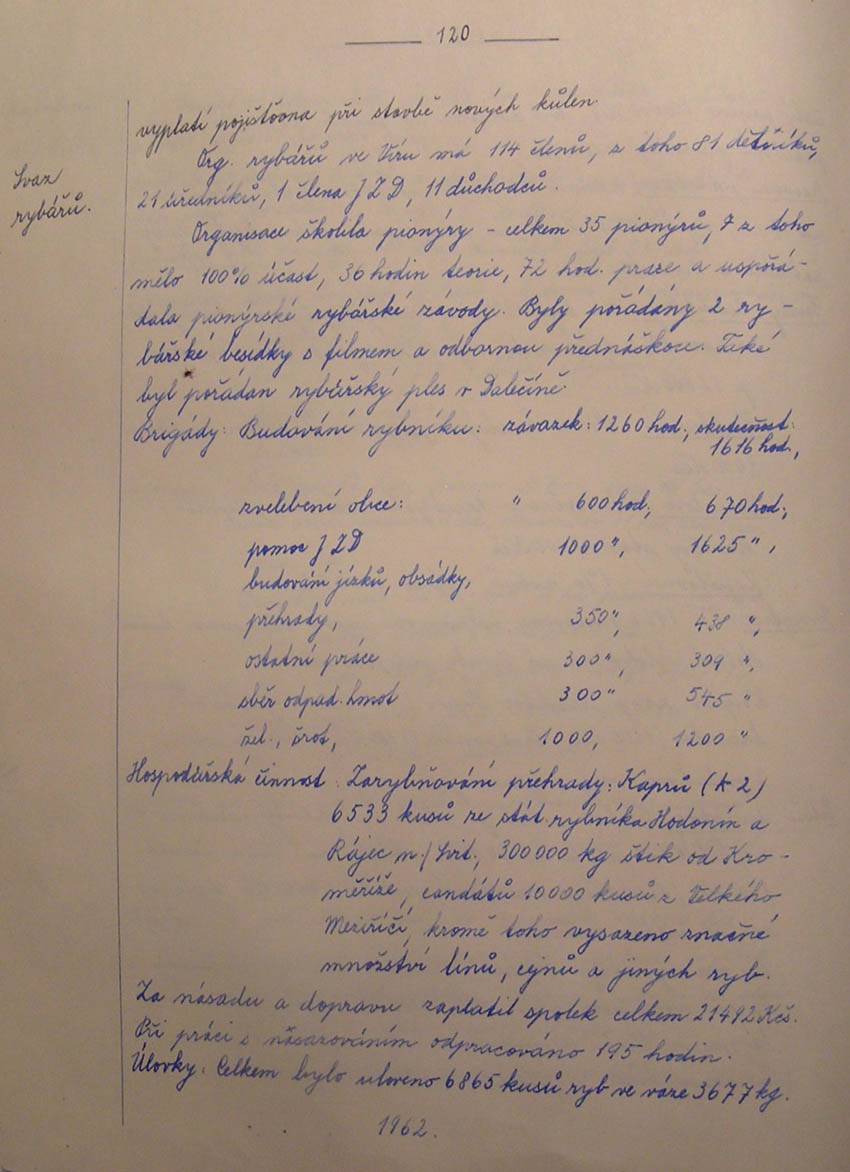 120
vyplatí pojišťovna při stavbě nových kůlen.
Svaz
rybářů.
Org. rybářů ve Víru má 114 členů, z toho 81 dělníků,
21 úředníků, 1 člena JZD, 11 důchodců.
Organisace školila pionýry - celkem 35 pionýrů, 7 z toho
mělo 100% účast, 36 hodin teorie, 72 hod. praxe a uspořá-
dala pionýrské rybářské závody. Byly pořádány 2 ry-
bářské besídky s filmem a odbornou přednáškou. Také
byl pořádan rybářský ples v Dalečíně.
Brigády: Budování rybníku: závazek: 1260 hod., skutečnost:
1616 hod.,
zvelebení obce: " 600 hod., 670 hod.,
pomoc JZD 1000 ", 1625 ",
budování jízků, obsádky,
přehrady, 350 ", 438 ",
ostatní práce 300 ", 309 ",
sběr odpad. hmot 300 " 545 "
žel., šrot, 1000, 1200 "
Hospodářská činnost: Zarybňování přehrady: Kaprů (k 2)
6533 kusů ze stát. rybníka Hodonín a
Rájec n./Svit., 300000 kg štik od Kro-
měříže, candátů 10000 kusů z Velkého
Meziříčí, kromě toho vysazeno značné
množství línů, cejnů a jiných ryb.
Za násadu a dopravu zaplatil spolek celkem 21492 Kčs.
Při práci s násazováním odpracováno 195 hodin.
Úlovky: Celkem bylo uloveno 6865 kusů ryb ve váze 3677 kg.
1962.